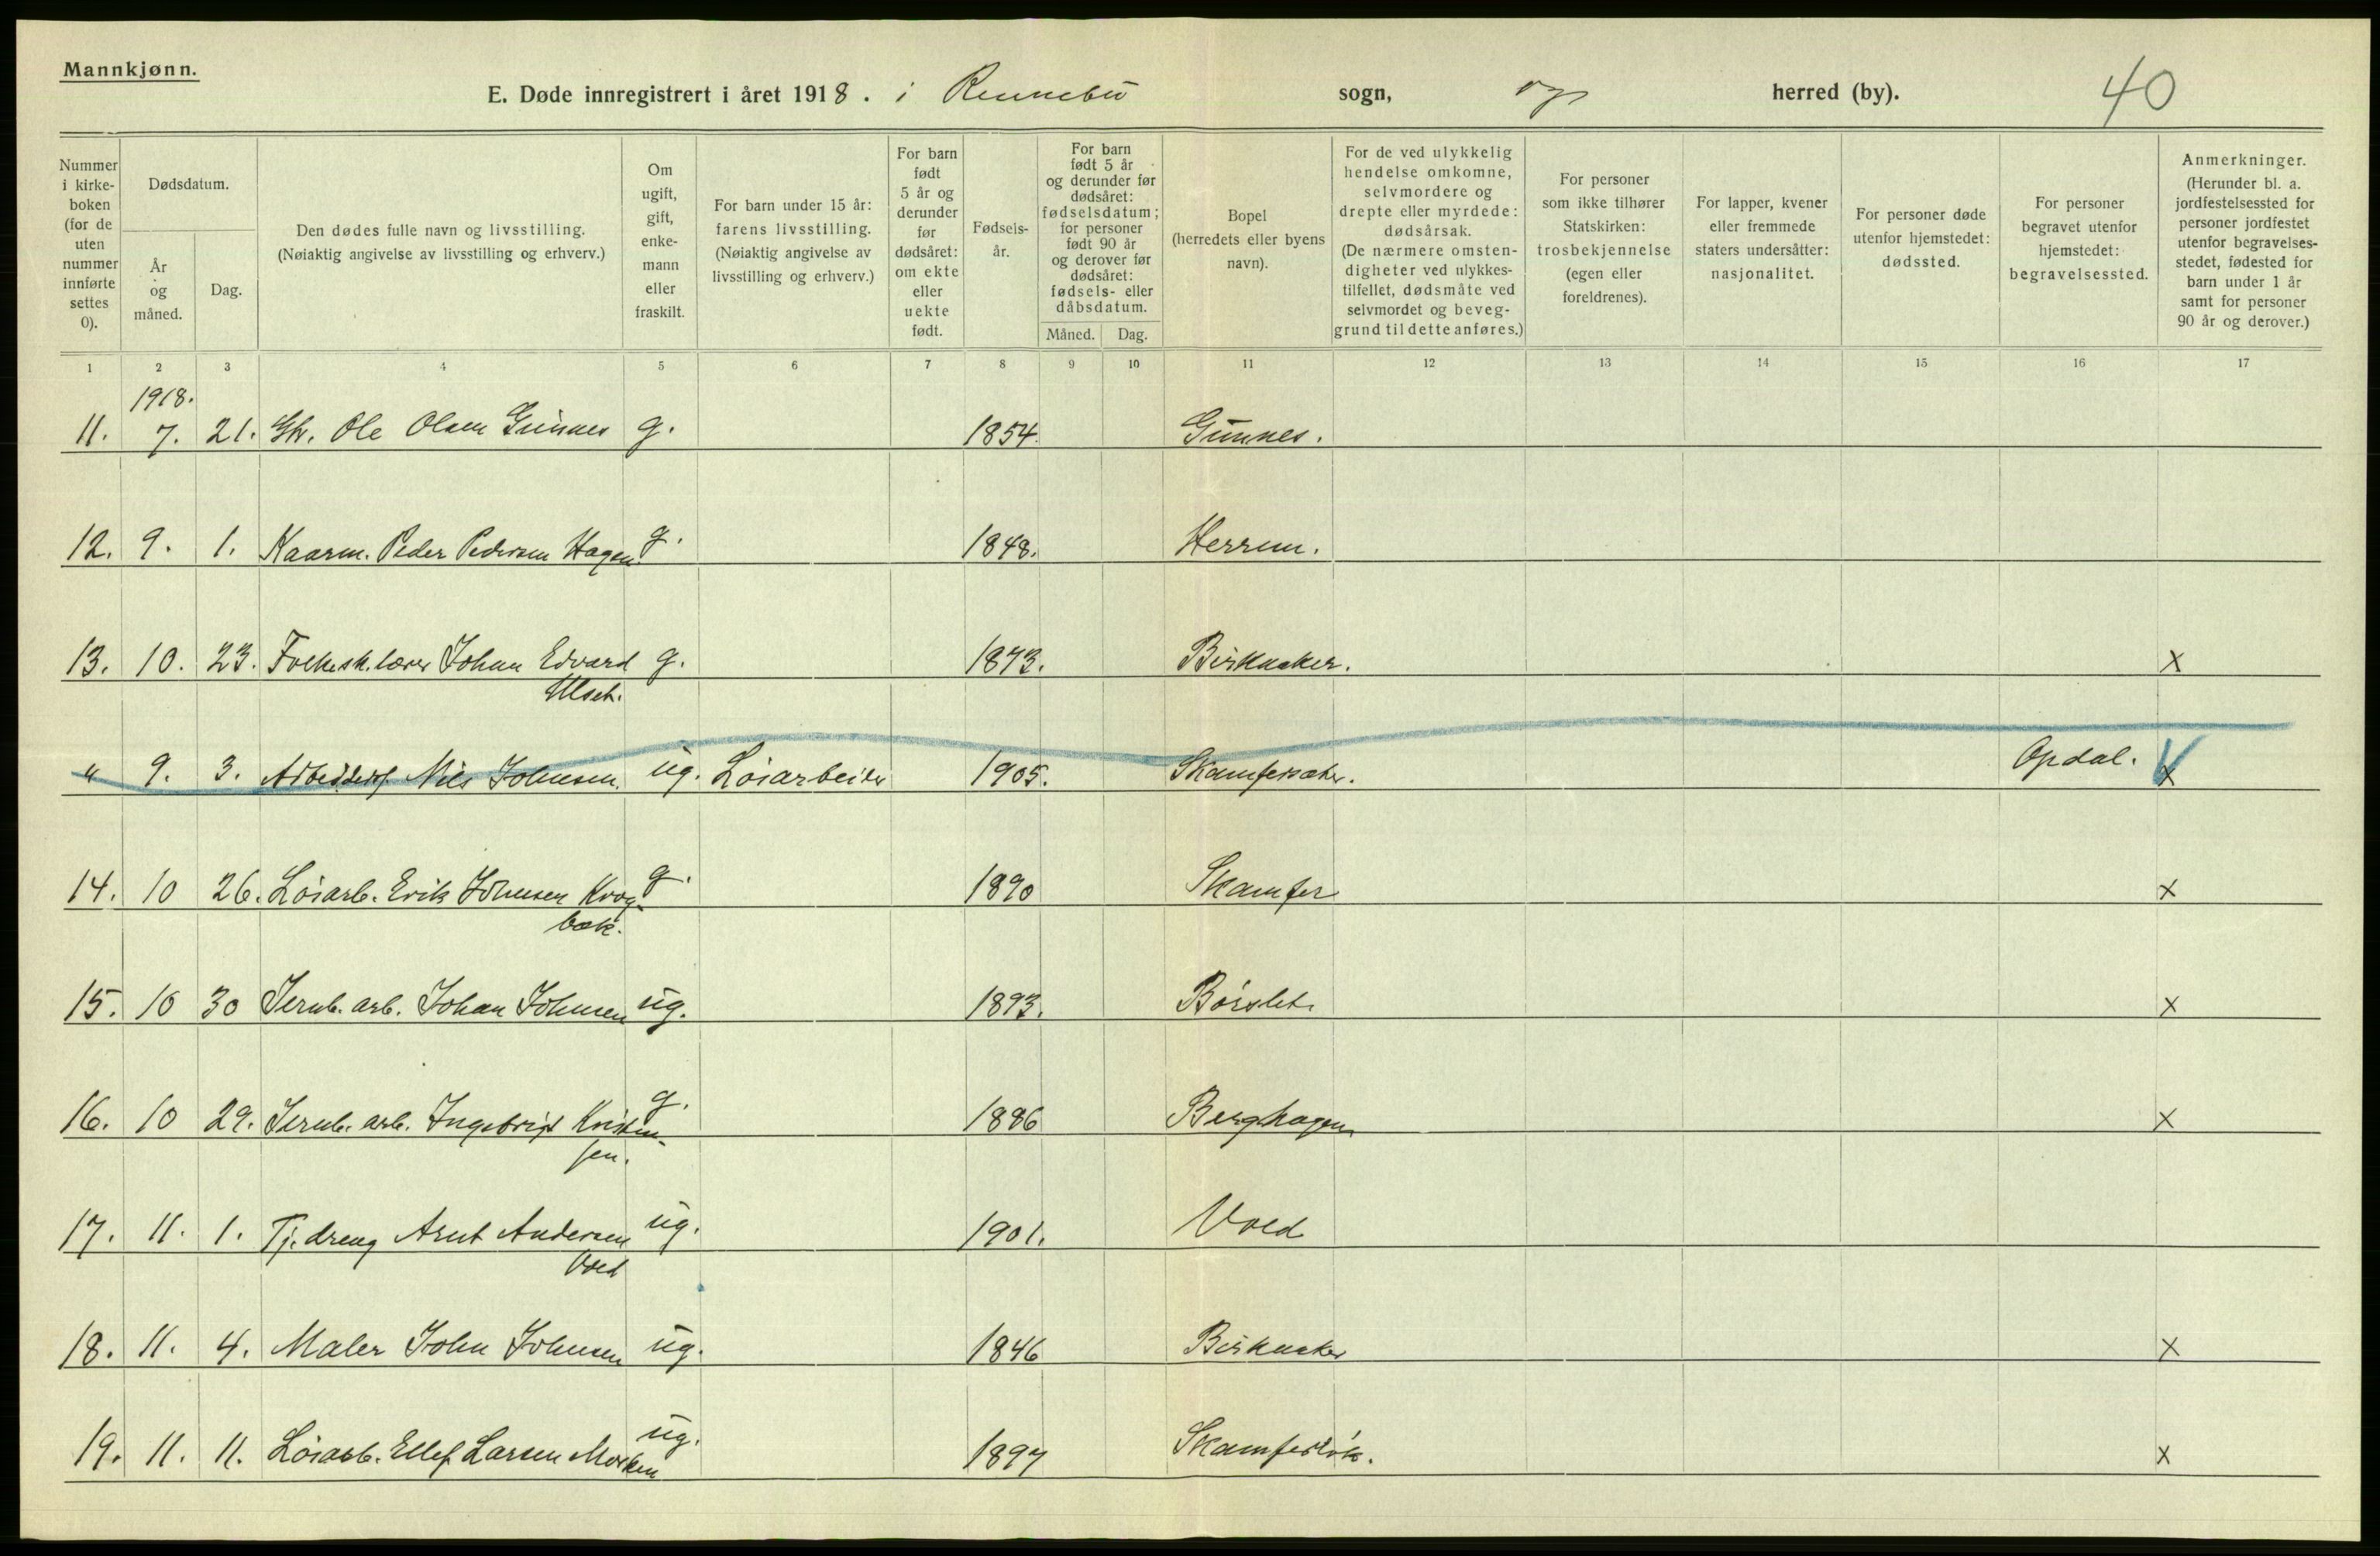 Mannkjønn.
E. Døde innregistrert i året 1918. i Rennebu sogn, og herred (by). 40
Nummer i kirke-boken (for de uten nummer innførte settes 0).
Dødsdatum.
År og måned.
Dag.
Den dødes fulle navn og livsstilling.
(Nøiaktig angivelse av livsstilling og erhverv.)
Om ugift, gift, enke-mann eller fraskilt.
For barn under 15 år: farens livsstilling.
(Nøiaktig angivelse av livsstilling og erhverv.)
For barn født 5 år og derunder før dødsåret: om ekte eller uekte født.
Fødsels-år.
For barn født 5 år og derunder før dødsåret: fødselsdatum; for personer født 90 år og derover før dødsåret: fødsels- eller dåbsdatum.
Måned. Dag.
Bopel (herredets eller byens navn).
For de ved ulykkelig hendelse omkomne, selvmordere og drepte eller myrdede: dødsårsak.
(De nærmere omsten-digheter ved ulykkes-tilfellet, dødsmåte ved selvmordet og beveg-grund til dette anføres.)
For personer som ikke tilhører Statskirken: trosbekjennelse (egen eller foreldrenes).
For lapper, kvener eller fremmede staters undersåtter: nasjonalitet.
For personer døde utenfor hjemstedet: dødssted.
For personer begravet utenfor hjemstedet: begravelsessted.
Anmerkninger.
(Herunder bl. a. jordfestelsessted for personer jordfestet utenfor begravelses-stedet, fødested for barn under 1 år samt for personer 90 år og derover.)
1 2 3 4 5 6 7 8 9 10 11 12 13 14 15 16 17
1918.
11. 7. 21. Ole Olsen Gunnes g. 1854. Gunnes.
12. 9. 1. Kaarm. Peder Pedersen Hagen g. 1848. Herrem.
13. 10. 23. Folkesk.lærer Johan Edvard g. 1873. Birkaaker. x
Ulset.
" 9. 3. Nils Johnsen. ug. Løiarbeider 1905. Skamfersæter. Opdal. x
14. 10 26. Løiarb. Erik Johnsen Krog- g. 1890 Skamfer x
bæk.
15. 10 30 Jernb. arb. Johan Johnsen ug. 1893. Børslet. x
16. 10 29. Jernb. arb. Ingebrigt Kristen- g. 1886 Berghagen x
sen.
17. 11. 1. Tj. dreng Arnt Andersen ug. 1901. Vold
Vold
18. 11. 4. Maler John Johnsen ug. 1846 Birkaaker x
19. 11. 11. Løiarb. Ellef Larsen Morken ug. 1897 x